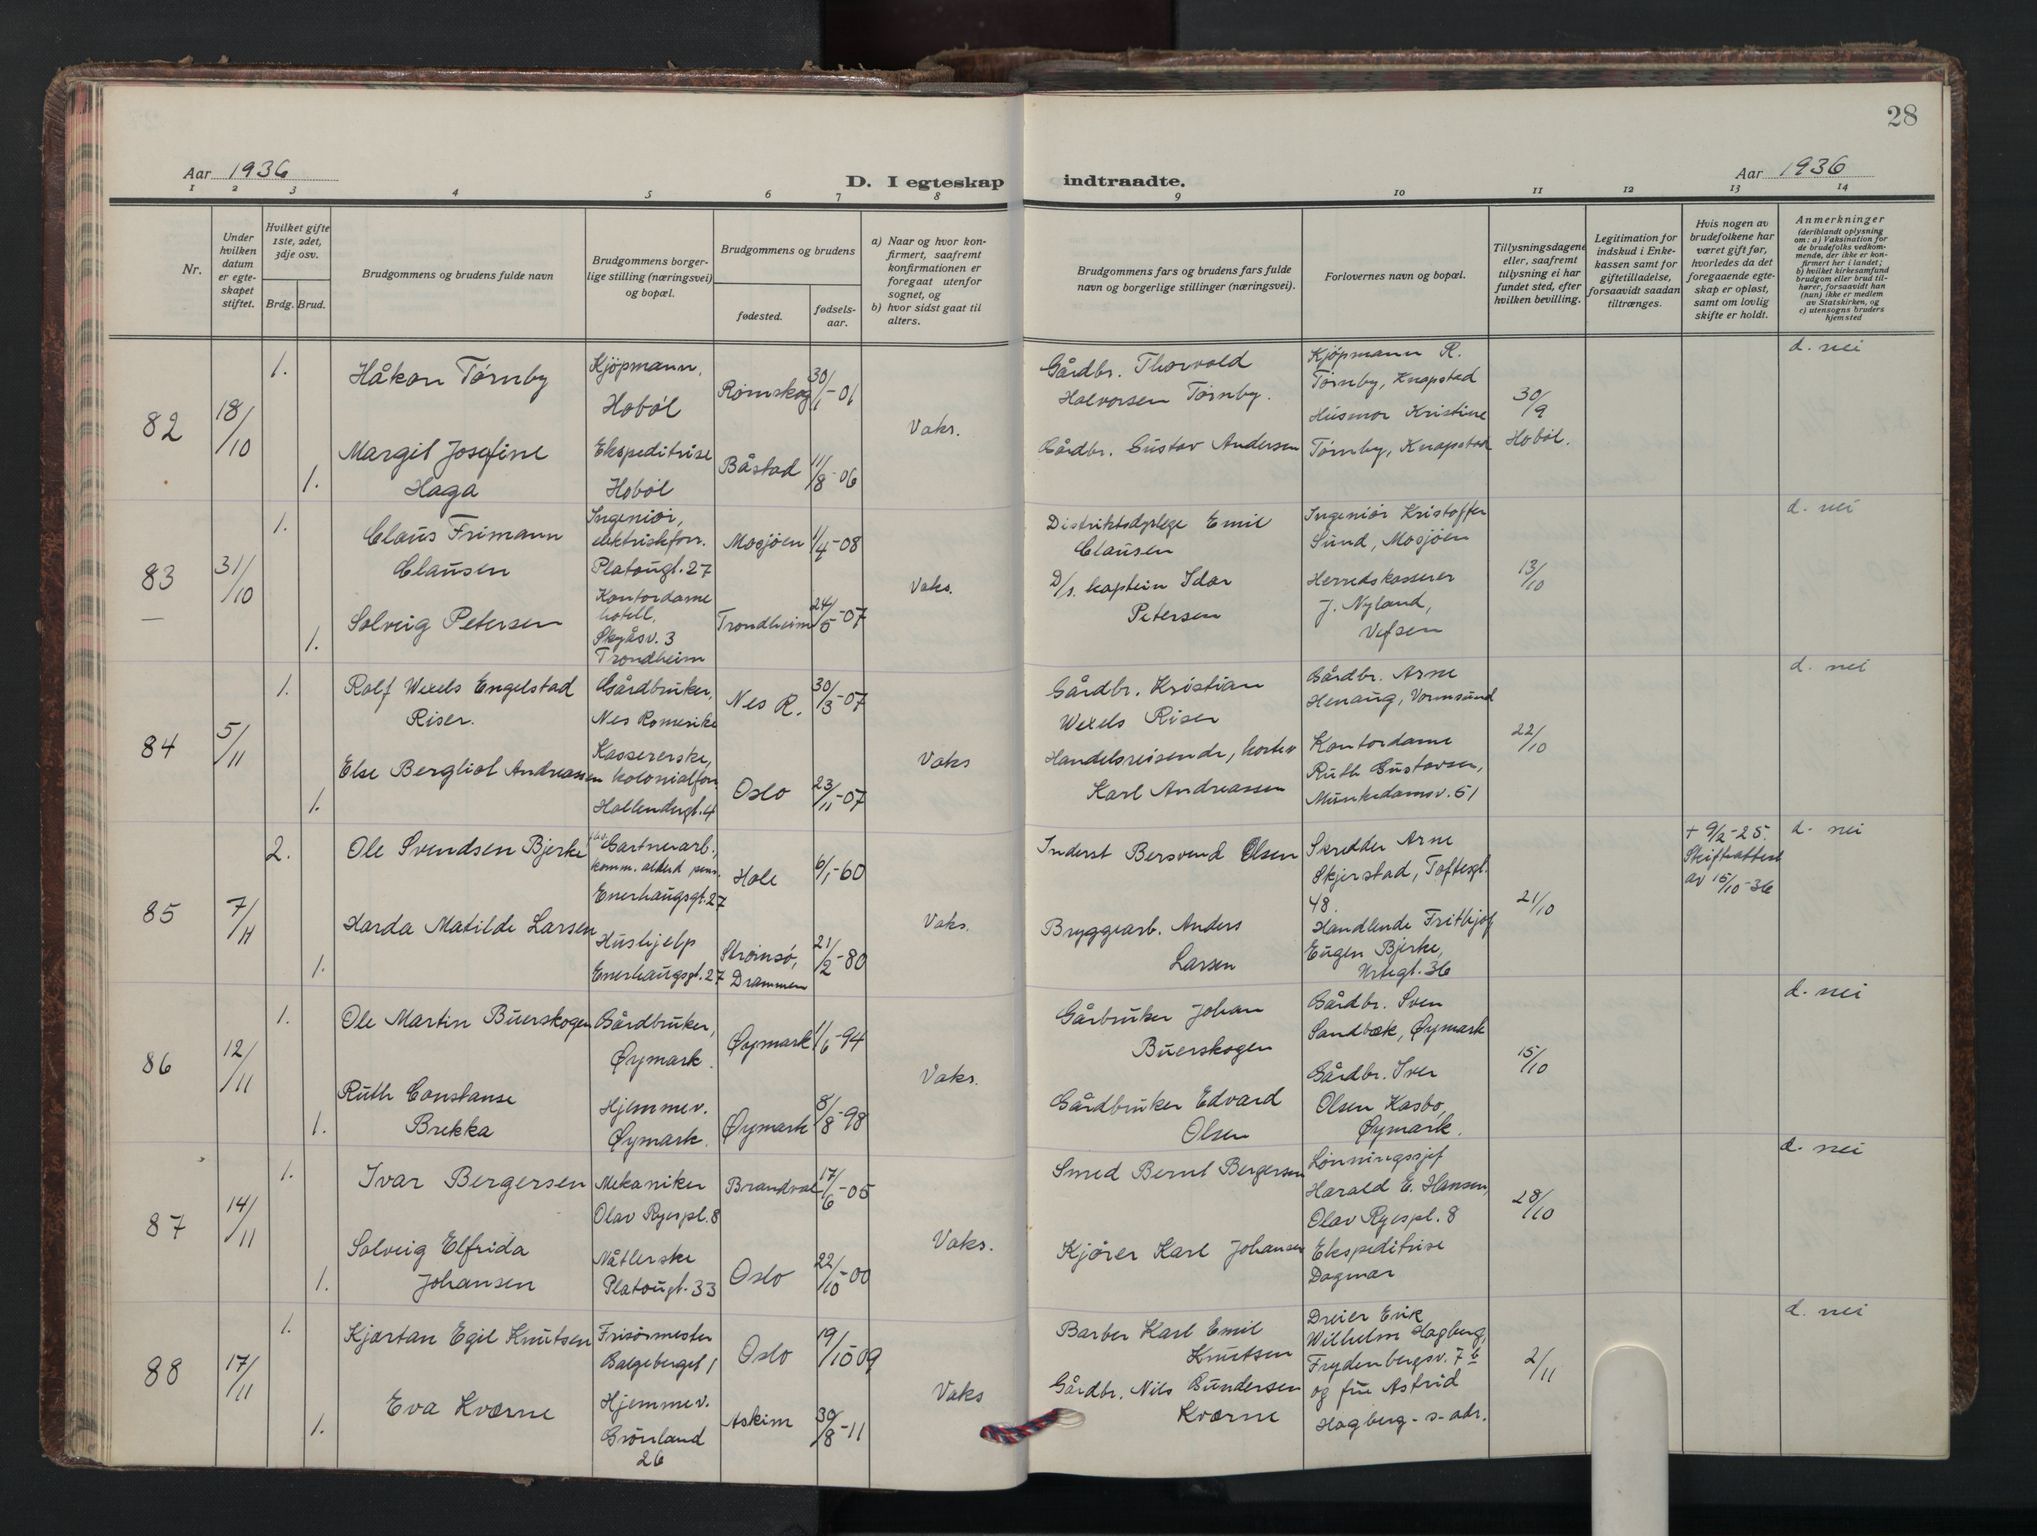 28
Aar 1936
D. I egteskap indtraadte.
Aar 1936
1 2 3 4 5 6 7 8 9 10 11 12 13 14
Nr.
Under hvilken datum er egteskapet stiftet.
Hvilket gifte 1ste, 2det, 3dje osv.
Brdg. Brud.
Brudgommens og brudens fulde navn
Brudgommens borgerlige stilling (næringsvei) og bopæl.
Brudgommens og brudens
fødested.
fødselsaar.
a) Naar og hvor konfirmert, saafremt konfirmationen er foregaat utenfor sognet, og
b) hvor sidst gaat til alters.
Brudgommens fars og brudens fars fulde navn og borgerlige stillinger (næringsvei).
Forlovernes navn og bopæl.
Tillysningsdagene eller, saafremt tillysning ei har fundet sted, efter hvilken bevilling.
Legitimation for indskud i Enkekassen samt for giftetilladelse, forsaavidt saadan tiltrænges.
Hvis nogen av brudefolkene har været gift før, hvorledes da det foregaaende egteskap er opløst, samt om lovlig skifte er holdt.
Anmerkninger
(deriblandt oplysning om: a) Vaksination for de brudefolks vedkommende, der ikke er konfirmert her i landet;
b) hvilket kirkesamfund brudgom eller brud tilhører, forsaavidt han (hun) ikke er medlem av Statskirken, og
c) utensogns bruders hjemsted
82
18/10
1.
Håkon Tørnby
Kjøpmann,
Hobøl
Rømskog
30/1-01
1.
Margit Josefine
Haga
Ekspeditrise
Hobøl
Båstad
11/8-06
Vaks.
Gårdbr. Thorvald
Halvorsen Tørnby.
Gårdbr. Gustav Andersen
Kjøpmann R.
Tørnby, Knapstad
Husmor Kristine
Tørnby, Knapstad
30/9
Hobøl.
d. nei
83
31/10
1.
Claus Frimann
Clausen
Ingeniør,
elektriskforr.
Platougt. 27
Mosjøen
1/4-08
1.
Solveig Petersen
Kontordame
hotell,
Skyåsv. 3
Trondheim
Trondheim
24/5-07
Vaks.
Distriktsdyrlege Emil
Clausen
D/s. kaptein Idar
Petersen
Ingeniør Kristoffer
Sund, Mosjøen
Herredskasserer
J. Nyland,
Vefsen
13/10
d. nei
84
5/11
1.
Rolf Wexels Engelstad
Riser.
Gårdbruker,
Nes Romerike
Nes R.
30/3-07
1.
Else Bergliot Andreassen
Kassererske,
kolonialforr.
Hollendergt. 4
Oslo
23/11-07
Vaks
Gårdbr. Kristian
Wexels Riser
Handelsreisende,
Karl Andreassen
Gårdbr. Arne
Henaug, Vormsund
Kontordame
Ruth Gustavsen,
Munkedamsv. 51
22/10
d. nei
85
7/11
2.
Ole Svendsen Bjerke
Gartnerarb.,
komm. alderd. pens.
Enerhaugsgt. 27
Hole
6/1-60
1.
Harda Matilde Larsen
Hushjelp
Enerhaugsgt. 27
Strømsø,
Drammen
21/2-80
Vaks.
Inderst Bersvend Olsen
Bryggearb. Anders
Larsen
Skredder Arne
Skjerstad, Toftesgt.
48.
Handlende Frithjof
Eugen Bjerke,
Urtegt. 36
21/10
+ 9/2-25.
Skifteattest
av 15/10-36
d. nei
86
12/11
1.
Ole Martin Buerskogen
Gårdbruker,
Øymark.
Øymark
1/6-94
1.
Ruth Constanse
Brekka
Hjemmev.
Øymark.
Øymark
8/8-98
Vaks.
Gårbruker Johan
Buerskogen
Gårdbruker Edvard
Olsen
Gårdbr. Sven
Sandbæk, Øymark
Gårdbr. Iver
Olsen Kasbo,
Øymark.
15/10
d. nei
87
14/11
1.
Ivar Bergersen
Mekaniker
Olav Ryespl. 8
Brandval
17/6-05
1.
Solveig Elfrida
Johansen
Nåtlerske
Platougt. 33
Oslo
22/10-00
Vaks.
Smed Bernt Bergersen
Kjører Karl Johansen
Lønningssjef
Harald E. Hansen,
Olav Ryespl. 8
Ekspeditrise
Dagmar
28/10
d. nei
88
17/11
1.
Kjartan Egil Knutsen
Frisørmester
Galgeberget 1
Oslo
19/10-09
1.
Eva Kværne
Hjemmev.
Grønland
26
Askim
30/8-11
Vaks
Barber Karl Emil
Knutsen
Gårdbr. Nils Gundersen
Kværne
Dreier Erik
Wilhelm Hagberg,
Frydenbergsv. 7 b
og frue Astrid
Hagberg - s-adr.
2/11
d. nei